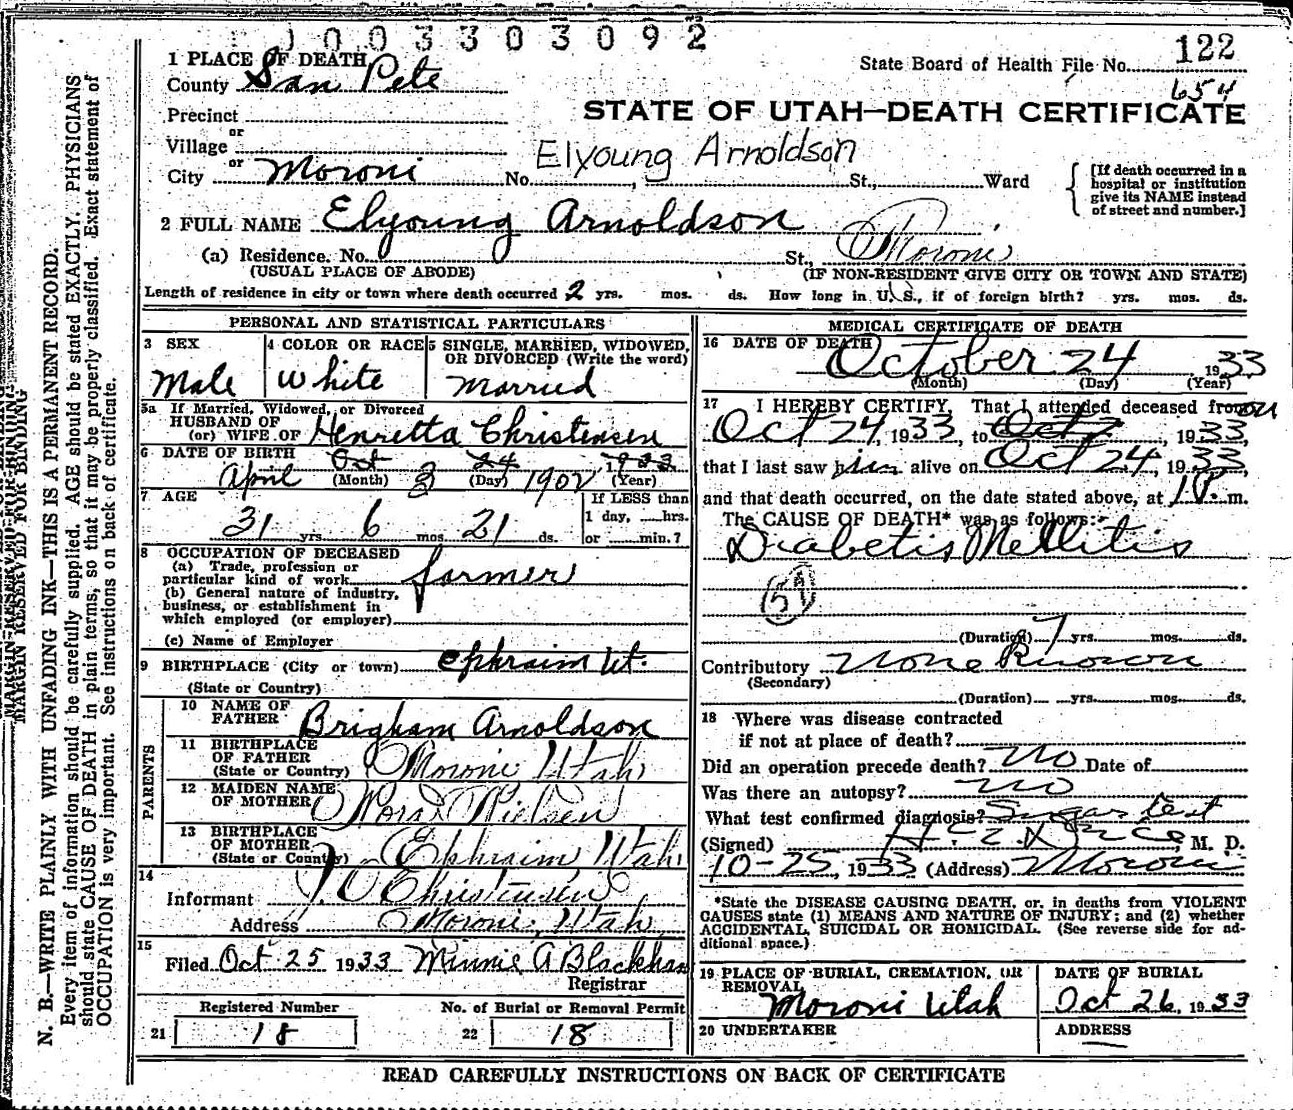 1 0 0 3 3 0 3 0 9 2
1 PLACE OF DEATH
County San Pete
State Board of Health File No. 122
654
Precinct
STATE OF UTAH—DEATH CERTIFICATE
or
Village
Elyoung Arnoldson
or
City Moroni No. , St., Ward
[If death occurred in a
hospital or institution
give its NAME instead
of street and number.]
2 FULL NAME Elyoung Arnoldson
(a) Residence. No. St., Moroni
(USUAL PLACE OF ABODE) (IF NON-RESIDENT GIVE CITY OR TOWN AND STATE)
Length of residence in city or town where death occurred 2 yrs. mos. ds. How long in U.S., if of foreign birth? yrs. mos. ds.
PERSONAL AND STATISTICAL PARTICULARS
3 SEX 4 COLOR OR RACE 5 SINGLE, MARRIED, WIDOWED,
OR DIVORCED (Write the word)
Male White Married
5a If Married, Widowed, or Divorced
HUSBAND OF
(or) WIFE OF Henretta Christensen
6 DATE OF BIRTH Oct 24 1933
April (Month) 3 (Day) 1902 (Year)
7 AGE
31 yrs. 6 mos. 21 ds.
If LESS than
1 day, hrs.
or min.?
8 OCCUPATION OF DECEASED
(a) Trade, profession or
particular kind of work farmer
(b) General nature of industry,
business, or establishment in
which employed (or employer)
(c) Name of Employer
9 BIRTHPLACE (City or town) Ephraim Ut.
(State or Country)
PARENTS
10 NAME OF
FATHER Brigham Arnoldson
11 BIRTHPLACE
OF FATHER
(State or Country) Moroni Utah
12 MAIDEN NAME
OF MOTHER Nora Nielsen
13 BIRTHPLACE
OF MOTHER
(State or Country) Ephraim Utah
14
Informant Christensen
Address Moroni, Utah
15
Filed Oct 25 1933 Minnie A Blackham
Registrar
Registered Number No. of Burial or Removal Permit
21 18 22 18
MEDICAL CERTIFICATE OF DEATH
16 DATE OF DEATH
October 24 1933
(Month) (Day) (Year)
17 I HEREBY CERTIFY, That I attended deceased from on
Oct 24, 1933, to Oct , 1933,
that I last saw him alive on Oct 24, 1933,
and that death occurred, on the date stated above, at 1 P. m.
The CAUSE OF DEATH* was as follows:
Diabetis Mellitis
59
(Duration) 7 yrs. mos. ds.
Contributory None Known
(Secondary)
(Duration) yrs. mos. ds.
18 Where was disease contracted
if not at place of death?
Did an operation precede death? No Date of
Was there an autopsy? no
What test confirmed diagnosis? Sugar test
(Signed) , M. D.
10-25, 1933 (Address) Moroni
*State the DISEASE CAUSING DEATH, or, in deaths from VIOLENT
CAUSES state (1) MEANS AND NATURE OF INJURY; and (2) whether
ACCIDENTAL, SUICIDAL OR HOMICIDAL. (See reverse side for ad-
ditional space.)
19 PLACE OF BURIAL, CREMATION, OR
REMOVAL
Moroni Utah
DATE OF BURIAL
Oct 26, 1933
20 UNDERTAKER ADDRESS
READ CAREFULLY INSTRUCTIONS ON BACK OF CERTIFICATE
MARGIN RESERVED FOR BINDING
N. B.—WRITE PLAINLY WITH UNFADING INK—THIS IS A PERMANENT RECORD.
Every item of information should be carefully supplied. AGE should be stated EXACTLY. PHYSICIANS
should state CAUSE OF DEATH in plain terms, so that it may be properly classified. Exact statement of
OCCUPATION is very important. See instructions on back of certificate.